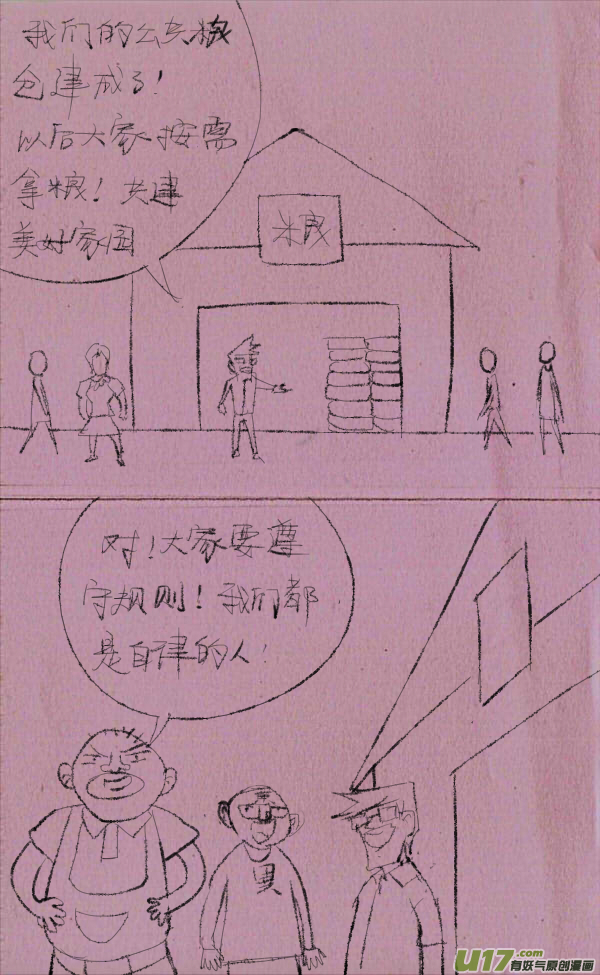 我们的公共粮
仓建成了!
以后大家按需
拿粮!共建
美好家园
粮
对!大家要遵
守规则!我们都
是自律的人!
男
U17.com
有妖气原创漫画